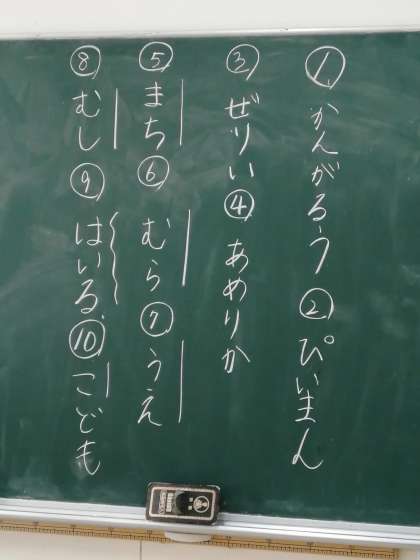 ①かんがるう②ぴいまん
③ぜりい④あめりか
⑤まち⑥むら⑦うえ
⑧むし⑨はいる⑩こども